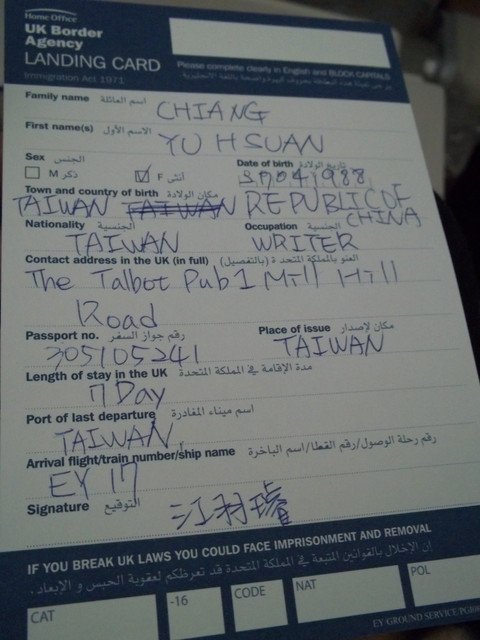 Home Office
UK Border
Agency
LANDING CARD
Immigration Act 1971
Please complete clearly in English and BLOCK CAPITALS
Family name اسم العائلة
CHIANG
First name(s) الاسم الأول
YU HSUAN
Sex الجنس
M ذكر F أنثى
Date of birth تاريخ الولادة
30041988
Town and country of birth مكان الولادة
TAIWAN TAIWAN REPUBLIC OF CHINA
Nationality الجنسية
TAIWAN
Occupation
WRITER
Contact address in the UK (in full) العنو بالمملكة المتحدة (بالتفصيل)
The Talbot Pub 1 Mill Hill
Road
Passport no. رقم جواز السفر
305105241
Place of issue مكان لإصدار
TAIWAN
Length of stay in the UK مدة الإقامة في المملكة المتحدة
7 Day
Port of last departure اسم ميناء المغادرة
TAIWAN
Arrival flight/train number/ship name رقم رحلة الوصول/رقم القطا/اسم الباخرة
EY 17
Signature التوقيع
江羽瑄
IF YOU BREAK UK LAWS YOU COULD FACE IMPRISONMENT AND REMOVAL
إن الإخلال بالقوانين المتبعة في المملكة المتحدة قد تعرظكم لعقوبة الحبس و الإبعاد.
CAT
-16
CODE
NAT
POL
EY/GROUND SERVICE/PG